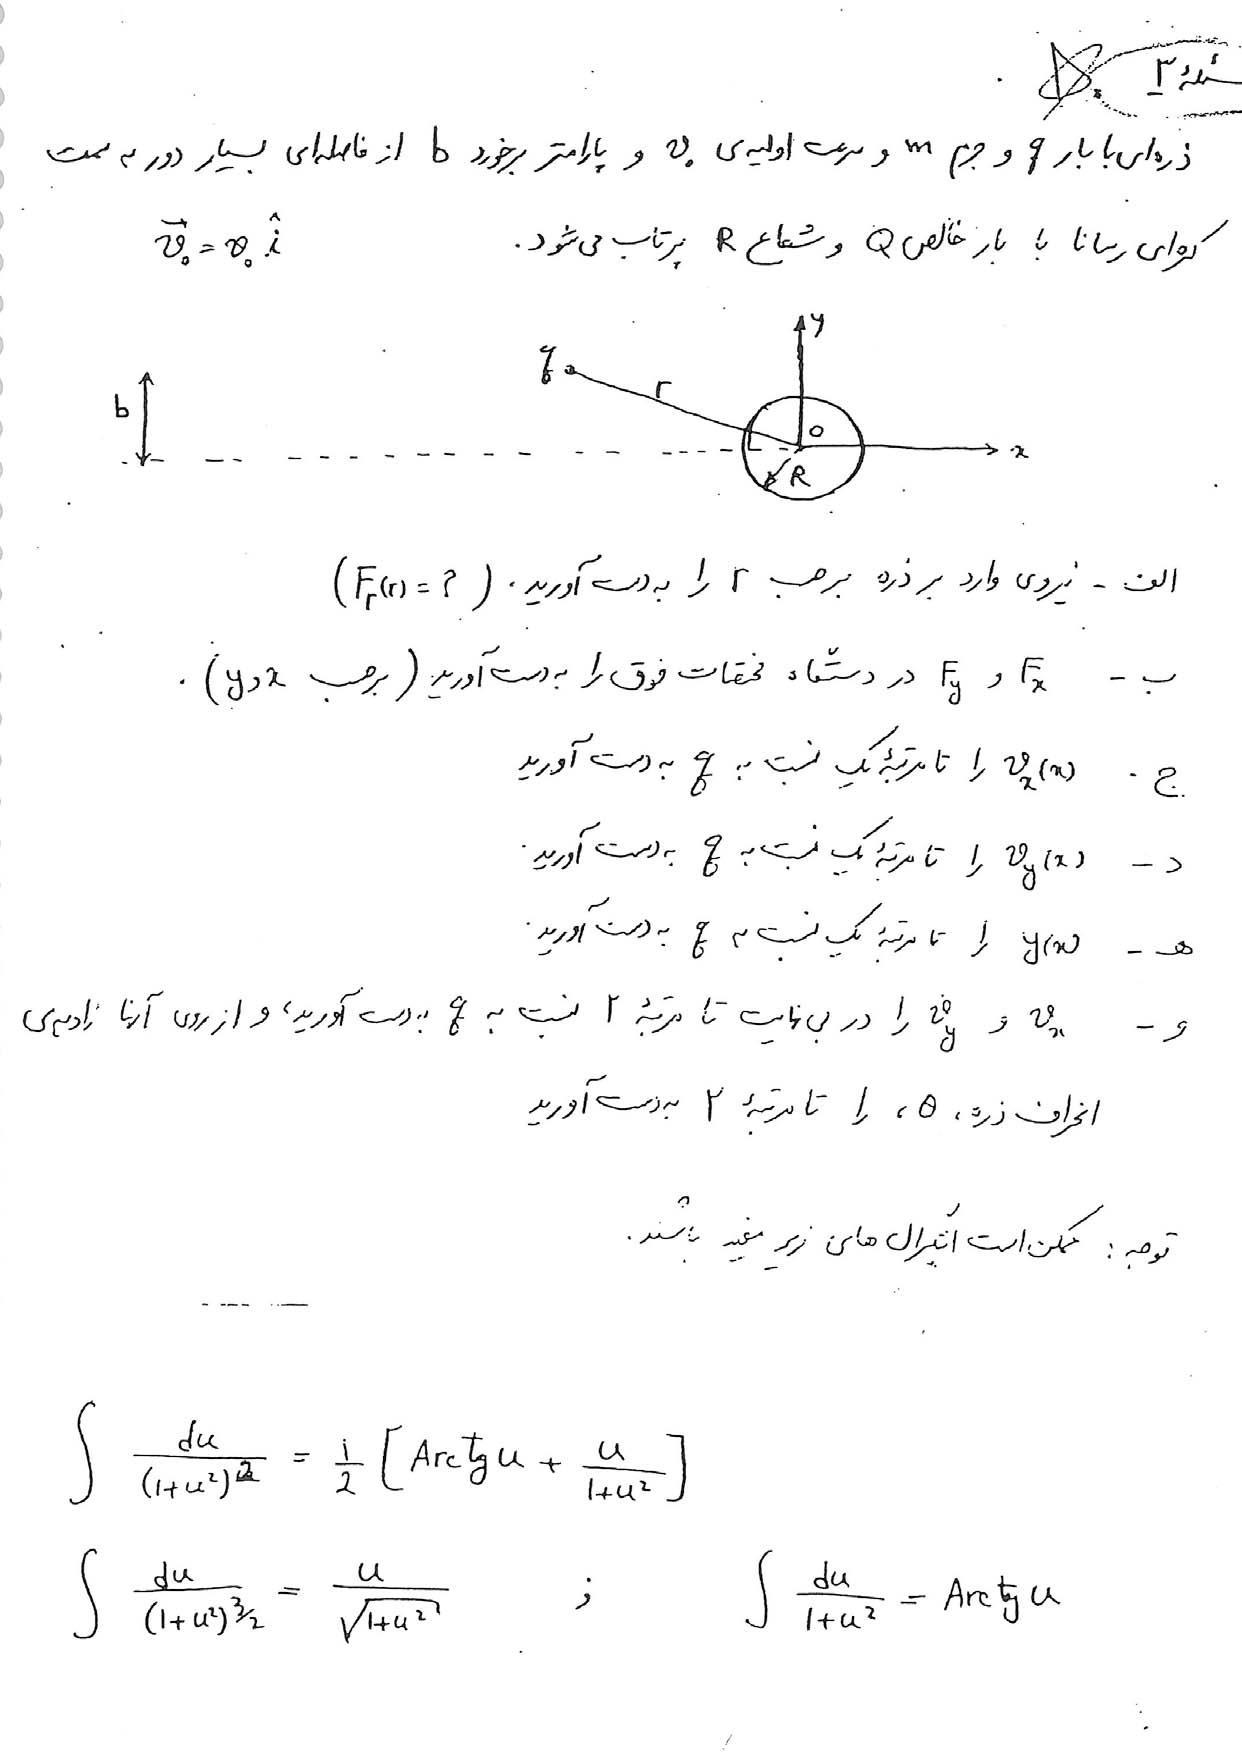 مسئلهٔ ۳
ذره‌ای با بار q و جرم m و سرعت اولیه‌ی v₀ و پارامتر برخورد b از فاصله‌ای بسیار دور به سمت
کره‌ای رسانا با بار خالص Q و شعاع R پرتاب می‌شود. v⃗₀ = v₀ î
y
q
r
b
O
x
R
الف - نیروی وارد بر ذره برحسب r را به‌دست آورید. (Fᵣ(r) = ?)
ب - Fₓ و F_y در دستگاه مختصات فوق را به‌دست آورید (برحسب x و y).
ج - vₓ(x) را تا مرتبهٔ یک نسبت به q به‌دست آورید
د - v_y(x) را تا مرتبهٔ یک نسبت به q به‌دست آورید.
هـ - y(x) را تا مرتبهٔ یک نسبت به q به‌دست آورید.
و - vₓ و v_y را در بی‌نهایت تا مرتبهٔ ۲ نسبت به q به‌دست آورید، و از روی آنها زاویه‌ی
انحراف ذره، θ، را تا مرتبهٔ ۲ به‌دست آورید
توجه: ممکن است انتگرال‌های زیر مفید باشند.
∫ du/(1+u²)² = 1/2 [Arctg u + u/(1+u²)]
∫ du/(1+u²)^(3/2) = u/√(1+u²) ; ∫ du/(1+u²) = Arctg u